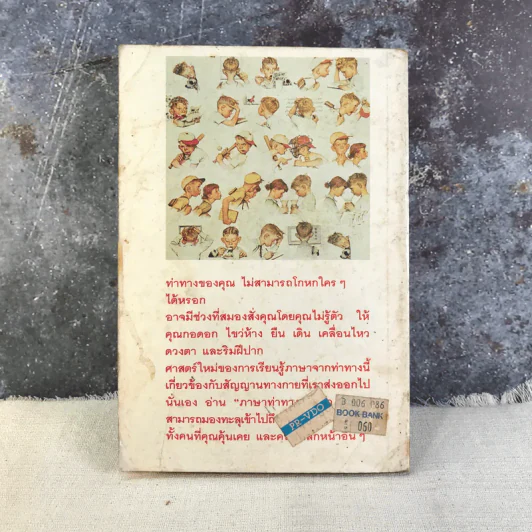 ท่าทางของคุณ ไม่สามารถโกหกใคร ๆ
ได้หรอก
อาจมีช่วงที่สมองสั่งคุณโดยคุณไม่รู้ตัว ให้
คุณกอดอก ไขว่ห้าง ยืน เดิน เคลื่อนไหว
ดวงตา และริมฝีปาก
ศาสตร์ใหม่ของการเรียนรู้ภาษาจากท่าทางนี้
เกี่ยวข้องกับสัญญานทางกายที่เราส่งออกไป
นั่นเอง อ่าน "ภาษาท่าทาง
สามารถมองทะลุเข้าไปถึง
ทั้งคนที่คุณคุ้นเคย และ หน้าอื่น ๆ
PR-VDO
BOOK BANK
060